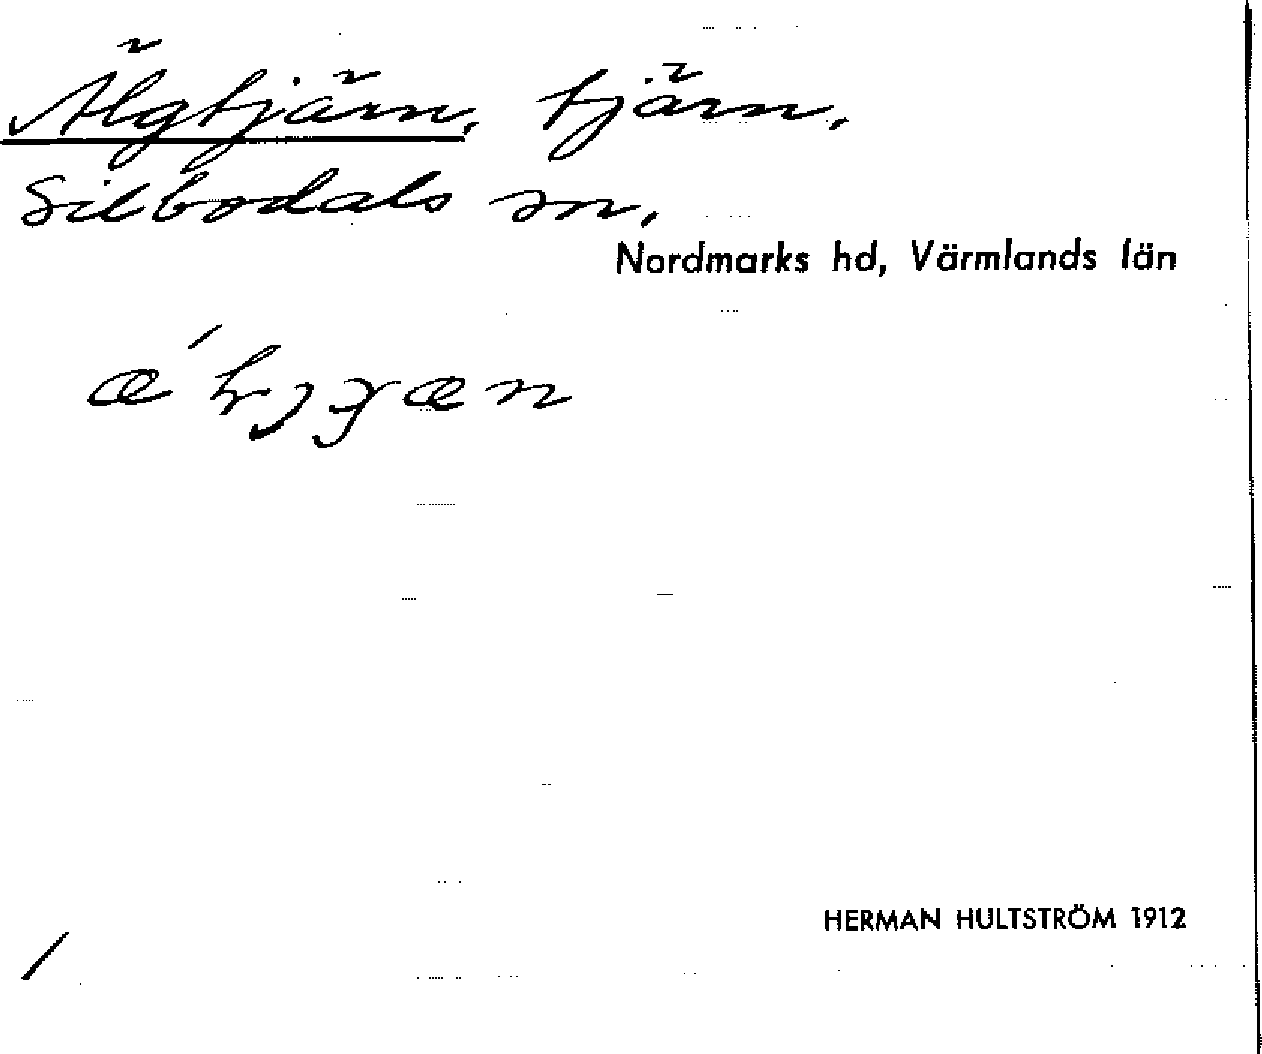 Älgtjärn, tjärn,
Silbodals sn,
Nordmarks hd, Värmlands län
HERMAN HULTSTRÖM 1912
/